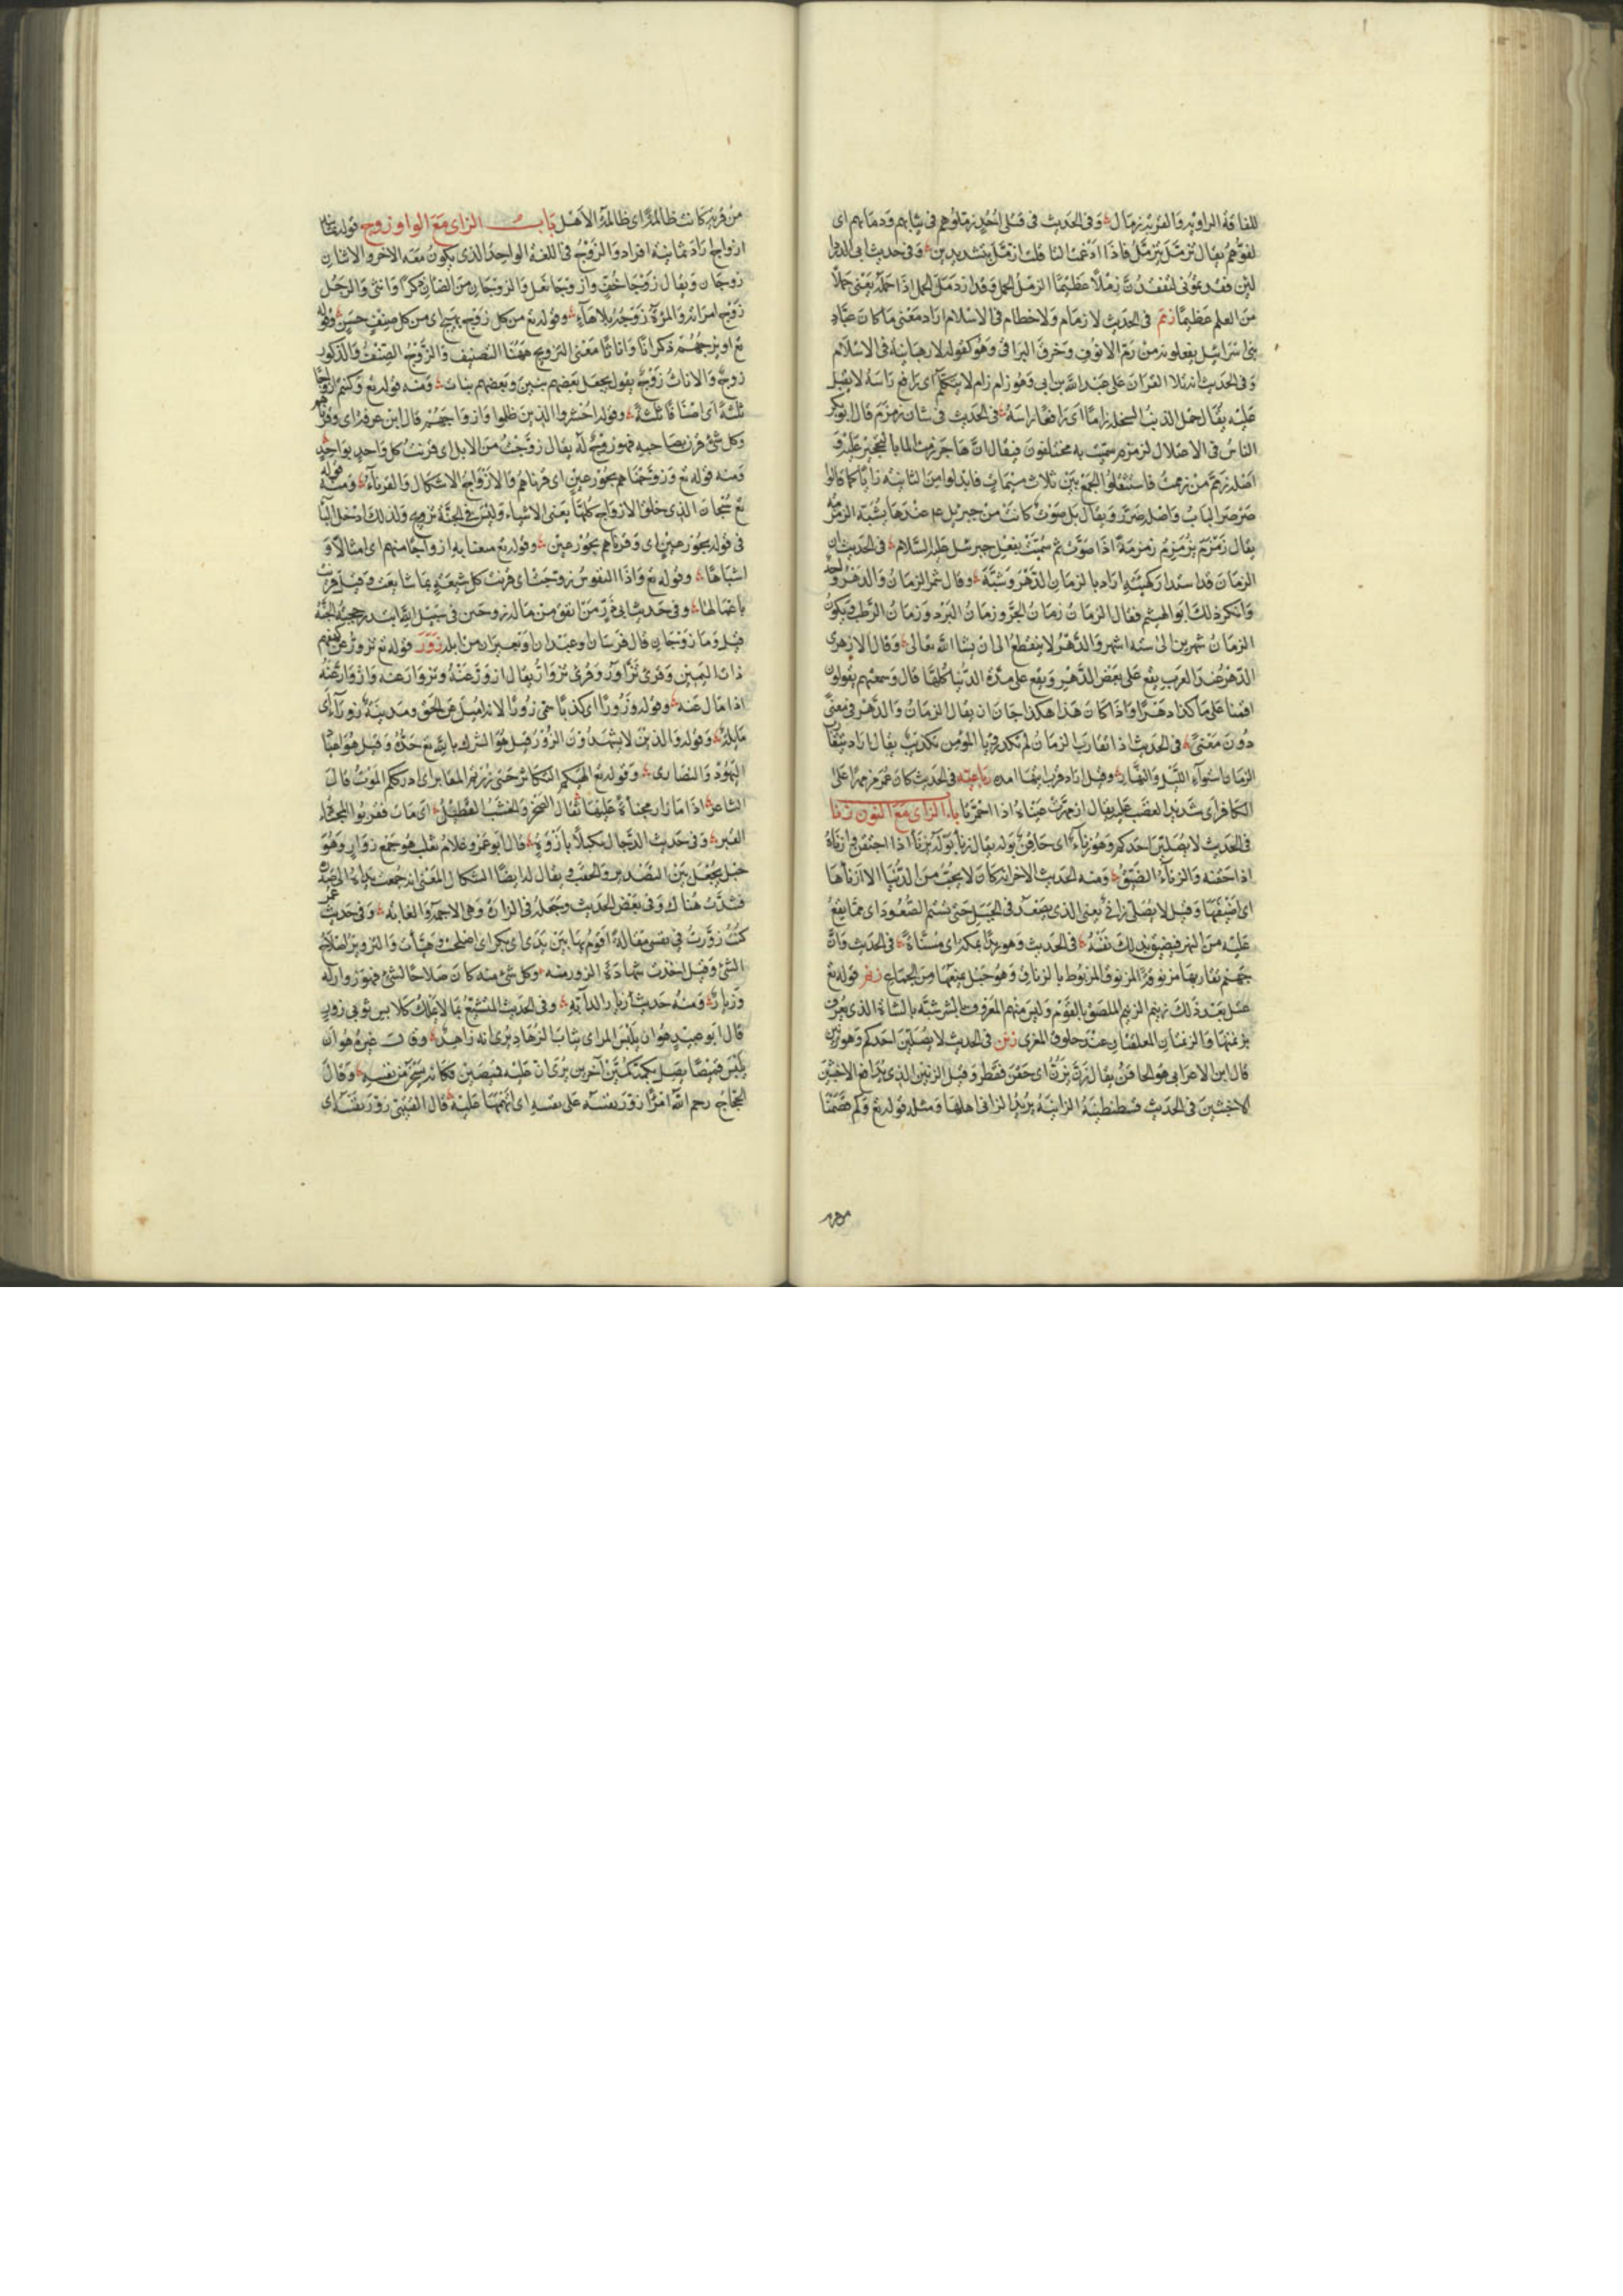 للفافة الراوية والقربة زمال وفي الحديث في قتلى احد زملوهم في ثيابهم ودمائهم اى
لفوهم يقال تزمل يتزمل فاذا ادغمت التا قلت ازمل بتشديدين وفي حديث ابى الدردا
لئن فقدتمونى لتفقدن زملا عظيما الزمل الحمل وقد ازدمل الحمل اذا حمله يعنى حملا
من العلم عظيما زمم في الحديث لا زمام ولا خطام في الاسلام اراد معنى ما كان عباد
بنى اسرائيل يفعلونه من زم الانوف وخرق التراقى وهو كقوله لا رهبانية في الاسلام
وفى الحديث انه تلا القران على عبد الله بن ابى وهو زام لا يتكلم اى رافع راسه لا يقبل
عليه يقال حمل الذئب السخلة زاما اى رافعا راسه في الحديث في شان زمزم قال ابو بكر
الناس في الاصلال لزمزم سميت به مختلفون فيقال ان هاجر زمت الما بالتحجير عليه و
اصله زمم من زممت فاستثقلوا الجمع بين ثلاث ميمات فابدلوا من الثانية زايا كما قالوا
صرصر الباب واصله صرر ويقال بل صوت كانت من جبريل عم عندها يشبه الزمزمة
يقال زمزم يزمزم زمزمة اذا صوت ثم سميت بفعل جبريل عليه السلام في الحديث ان
الزمان قد استدار كهيئته اراد بالزمان الدهر وسنيه وقال شمر الزمان والدهر واحد
وانكر ذلك ابو الهيثم فقال الزمان زمان الحر وزمان البرد وزمان الرطب ويكون
الزمان شهرين الى ستة اشهر والدهر لا ينقطع الى ان يشا الله تعالى وقال الازهرى
الدهر عند العرب يقع على بعض الدهر ويقع على مدة الدنيا كلها قال وسمعتهم يقولون
اقمنا على ما كذا دهرا واذا كان هذا هكذا جاز ان يقال الزمان والدهر في معنى
دون معنى في الحديث اذا تقارب الزمان لم تكد رؤيا المؤمن تكذب يقال اراد
الزمان استواء الليل والنهار وقيل اراد قرب انتها امده في الحديث كان عمر مزمهرا على
الكافر اى شديد الغضب عليه يقال ازمهرت عيناه اذا احمرتا باب الزاى مع النون زنا
في الحديث لا يصلين احدكم وهو زناء اى حاقن بوله يقال زنا بوله يزنا اذا احتقن وازناه
اذا حقنه والزناء الضيق ومنه الحديث الاخر انه كان لا يحب من الدنيا الا ازناها
اى اضيقها وقيل لا يصلى زانئ يعنى الذى يصعد في الجبل حتى يستتم الصعود اى مما يقع
عليه من النهر فيضيق بذلك نفسه في الحديث وهو يزنا بمكة اى مسناة في الحديث وان
جهنم يقاد بها مزنوقة المزنوق المربوط بالزناق وهو حبل يمنعها من الجماع زنم قوله تع
عتل بعد ذلك زنيم الزنيم الملصق بالقوم وليس منهم المعروف بالشر شبه بالشاة الذى يعرف
بزنمتها والزنمتان المعلقتان عند حلوق المعزى زنن في الحديث لا يصلين احدكم وهو زنين
قال ابن الاعرابى هو الحاقن يقال زن يزن اى حقن فقطر وقيل الزنين الذى يدافع الاخبثين
الاخبثين في الحديث قسطنطينية الزانية يريد الزانى اهلها ومثله قوله تع وكم قصمنا
من قرية كانت ظالمة اى ظالمة الاهل باب الزاى مع الواو زوج قوله ثمانية
ازواج اراد ثمانية افراد والزوج في اللغة الواحد الذى يكون معه الاخر والاثنان
زوجان ويقال زوجا خف وزوجا نعل والزوجان من الضان ذكرا وانثى والرجل
زوج امراته والمراة زوجه بلا هاء وقوله تع من كل زوج بهيج اى من كل صنف حسن وقوله
تع او يزوجهم ذكرانا واناثا معنى التزويج ههنا التصنيف والزوج الصنف والذكور
زوج والاناث زوج يقول يجعل بعضهم بنين وبعضهم بنات ومنه قوله تع وكنتم ازواجا
ثلثة اى اصنافا ثلثة وقوله احشروا الذين ظلموا وازواجهم قال ابن عرفة اى وقرناهم
وكل شئ قرن بصاحبه فهو زوج له يقال زوجت من الابل اى قرنت كل واحد بواحد
ومنه قوله تع وزوجناهم بحور عين اى قرناهم والازواج الاشكال والقرناء ومنه قوله
تع سبحان الذى خلق الازواج كلها يعنى الاشياء وليس في الجنة تزويج ولذلك ادخل البا
في قوله بحور عين اى وقرناهم بحور عين وقوله تع متعنا به ازواجا منهم اى امثالا و
اشباها وقوله تع واذا النفوس زوجت اى قرنت كل شيعة بما شايعت وقيل قرنت
باعمالها وفى حديث ابى ذر من انفق من ماله زوجين في سبيل الله ابتدرته حجبة الجنة
قيل وما زوجان قال فرسان او عبدان او بعيران من ابله زور قوله تع تزور عن كهفهم
ذات اليمين وقرئ تزاور وقرئ تزوار يقال ازور عنه وتزاور عنه وازوار عنه
اذا مال عنه وقوله وزورا اى كذبا سمى زورا لانه اميل عن الحق ومدينة زوراء اى
مايلة وقوله والذين لا يشهدون الزور قيل هو الشرك بالله تع جده وقيل هو اعياد
اليهود والنصارى وقوله تع الهيكم التكاثر حتى زرتم المقابر اى ادرككم الموت قال
الشاعر اذا ما زار مجناة عليها ثقال الصخر والخشب القطيل اى مات فقربوا المجناة
القبر وفى حديث الدجال مكبلا بازورة قال ابو عمرو غلام ثعلب هو جمع زوار وهو
حبل يجعل بين التصدير والحقب ويقال له ايضا الشكال المعنى انه جمعت يداه الى صدره
فشدت هناك وفى بعض الحديث وجعله في الزارة وهى الاجمة والغابة وفى حديث عمر
كنت زورت في نفسى مقالة اقوم بها بين يدى ابى بكر اى اصلحت وهيأت والتزوير اصلاح
الشئ وقيل اخذت شهادة الزور منه وكل شئ منه كان صلاحا لشئ فهو زوار له
وزيار ومنه حديث زيار الدابة وفى الحديث المتشبع بما لا يملك كلابس ثوبى زور
قال ابو عبيد هو ان يلبس المراى ثياب الزهاد يرى انه زاهد وقال غيره هو ان
يلبس قميصا يصل بكميه كمين آخرين يرى ان عليه قميصين فكانه يسخر من نفسه وقال
الحجاج رحم الله امرا زور نفسه على نفسه اى اتهمها عليه قال القتيبى زور نفسه اى